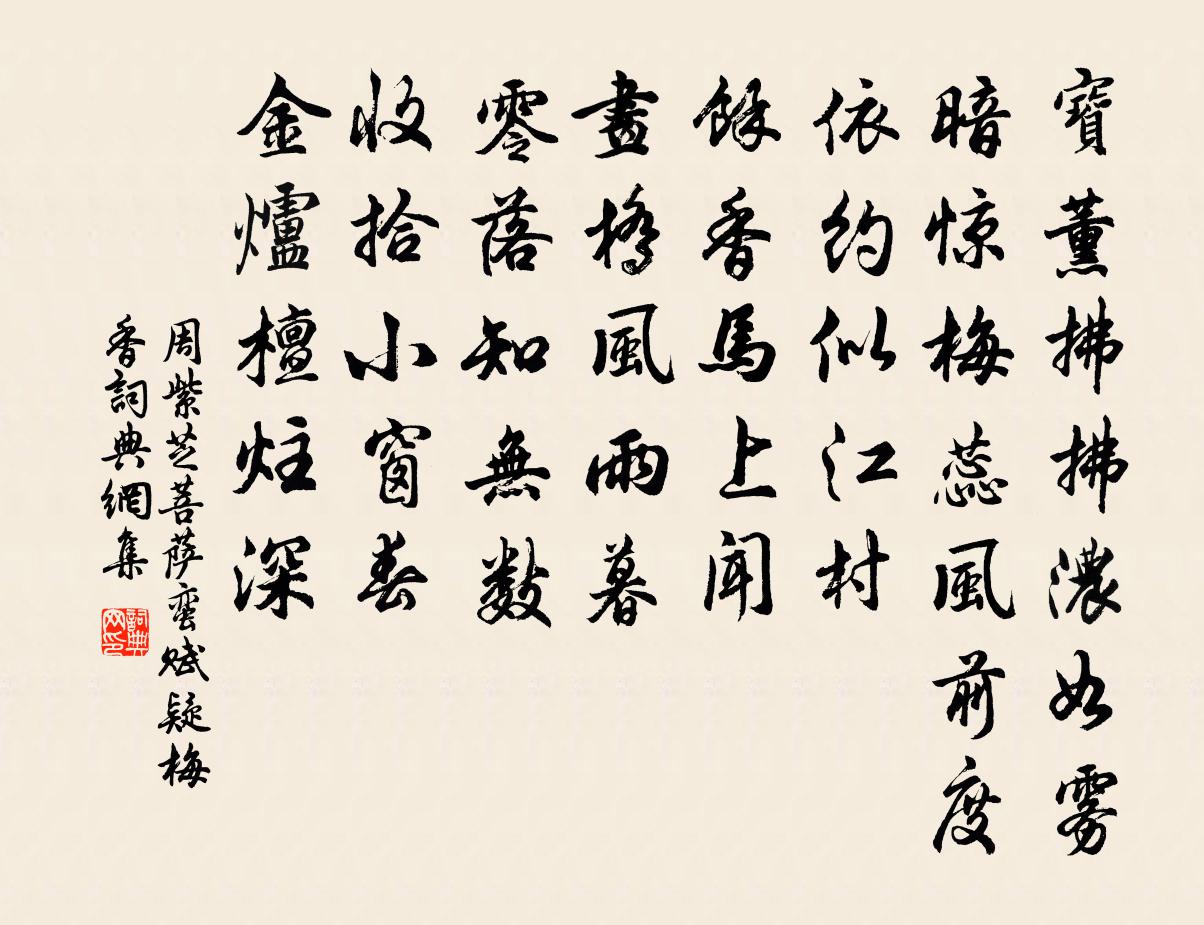 寶薰拂拂濃如雾
暗惊梅蕊風前度
依約似江村
餘香馬上聞
畫橋風雨暮
零落知無数
收拾小窗春
金爐檀炷深
周紫芝菩萨蛮赋疑梅
香詞典網集
詞典
网印